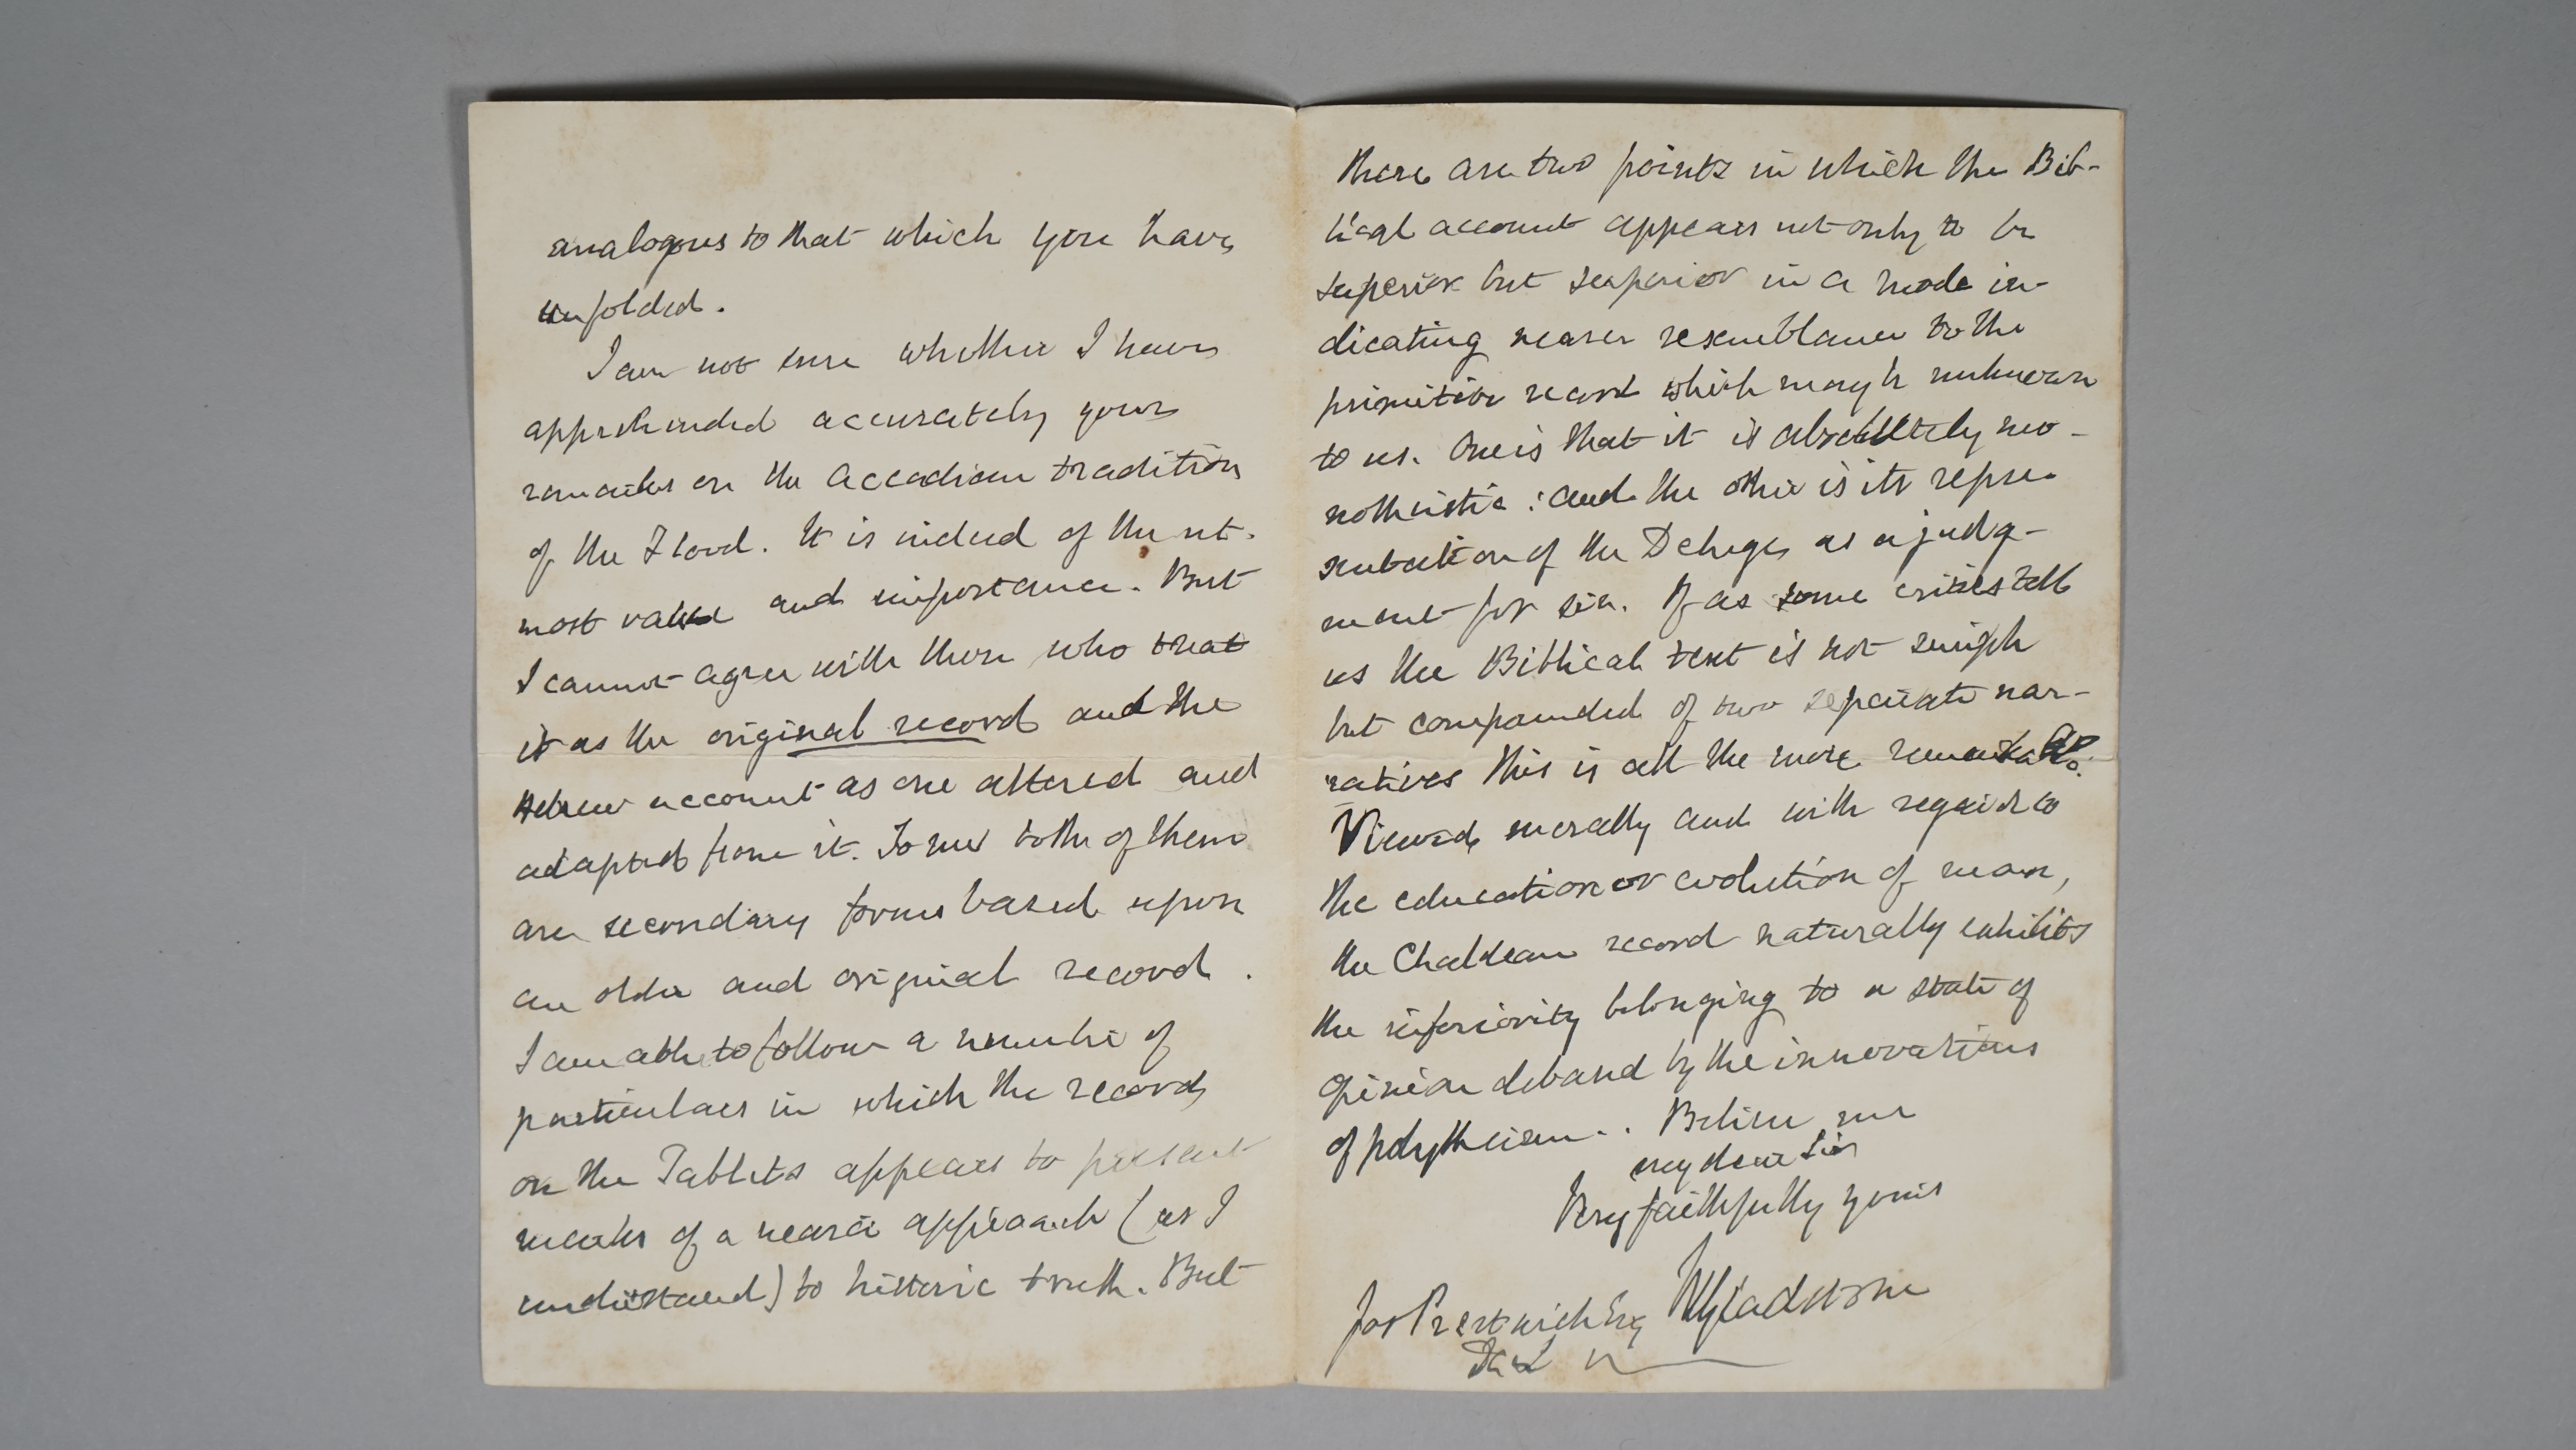 analogous to that which you have
unfolded.
I am not sure whether I have
apprehended accurately your
remarks on the Accadian tradition
of the Flood. It is indeed of the ut-
most value and importance. But
I cannot agree with those who treat
it as the original record and the
Hebrew account as one altered and
adapted from it. To me both of them
are secondary forms based upon
an older and original record.
I am able to follow a number of
particulars in which the record
on the Tablets appears to present
marks of a nearer approach (as I
understand) to historic truth. But
there are two points in which the Bib-
lical account appears not only to be
superior but superior in a mode in-
dicating nearer resemblance to the
primitive record which may be unknown
to us. One is that it is absolutely mo-
notheistic: and the other is its repre-
sentation of the Deluge as a judg-
ment for sin. If as some critics tell
us the Biblical text is not simple
but compounded of two separate nar-
ratives this is all the more remarkable.
Viewed morally and with regard to
the education or evolution of man,
the Chaldean record naturally exhibits
the inferiority belonging to a state of
opinion debased by the innovations
of polytheism. Believe me
my dear Sir
Very faithfully yours
WGladstone
Jos Prestwich Esq